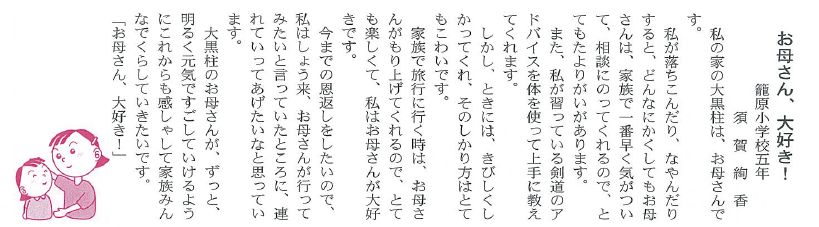 お母さん、大好き！
籠原小学校五年
須賀絢香
私の家の大黒柱は、お母さんで
す。
私が落ちこんだり、なやんだり
すると、どんなにかくしてもお母
さんは、家族で一番早く気がつい
て、相談にのってくれるので、と
てもたよりがいがあります。
また、私が習っている剣道のア
ドバイスを体を使って上手に教え
てくれます。
しかし、ときには、きびしくし
かってくれ、そのしかり方はとて
もこわいです。
家族で旅行に行く時は、お母さ
んがもり上げてくれるので、とて
も楽しくて、私はお母さんが大好
きです。
今までの恩返しをしたいので、
私はしょう来、お母さんが行って
みたいと言っていたところに、連
れていってあげたいなと思ってい
ます。
大黒柱のお母さんが、ずっと、
明るく元気ですごしていけるよう
にこれからも感しゃして家族みん
なでくらしていきたいです。
「お母さん、大好き！」